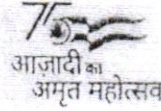 75
आज़ादी का
अमृत महोत्सव